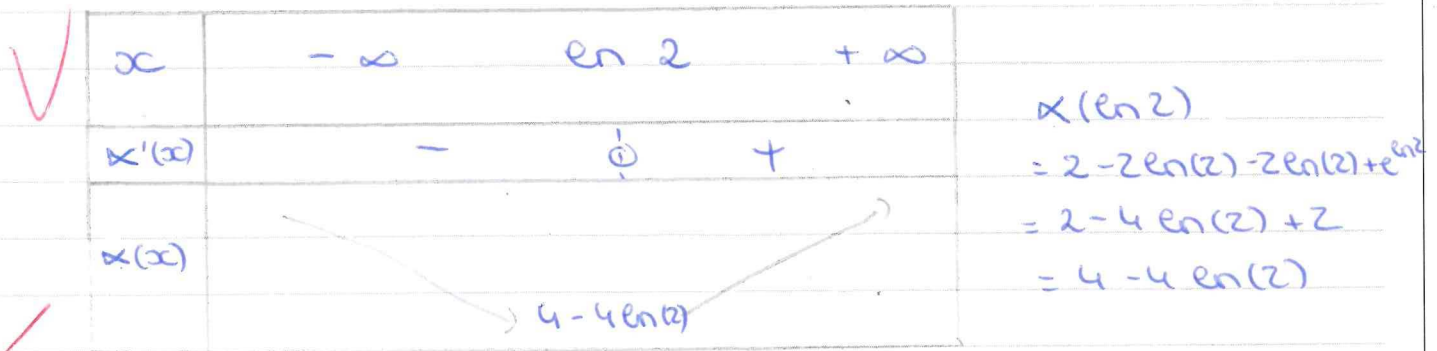 x - ∞ ln 2 + ∞
α'(x) - 0 +
α(x)
4 - 4 ln(2)
α(ln 2)
= 2 - 2 ln(2) - 2 ln(2) + e^ln2
= 2 - 4 ln(2) + 2
= 4 - 4 ln(2)